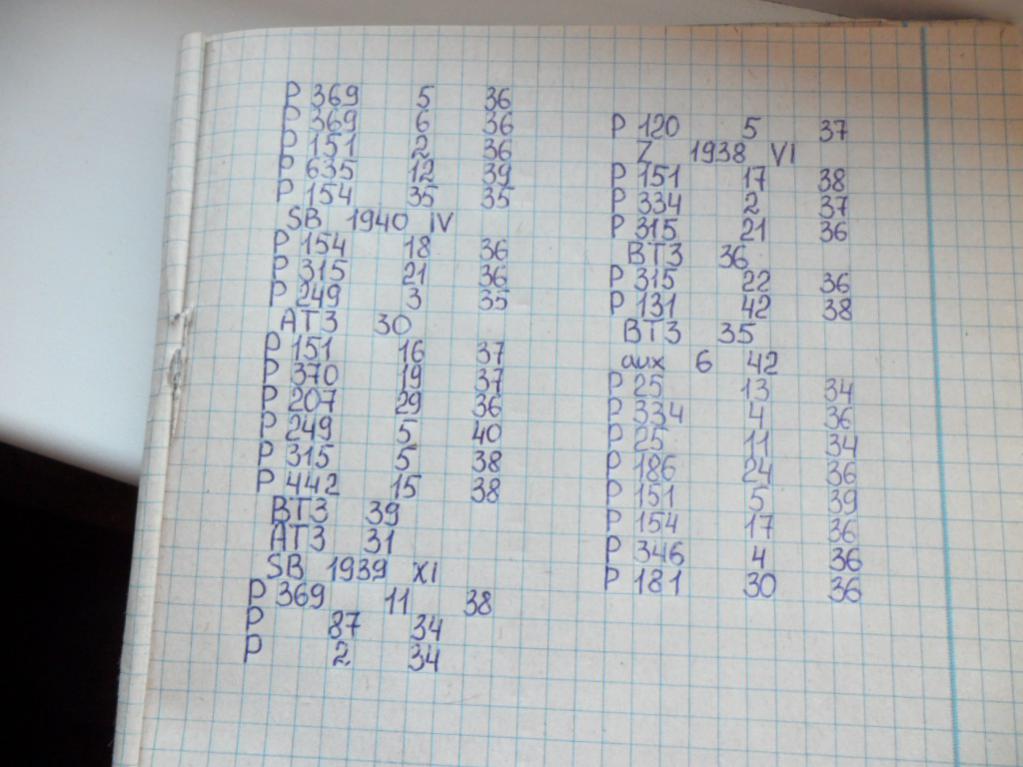 P 369 5 36
P 369 6 36
P 151 2 36
P 635 12 39
P 154 35 35
SB 1940 IV
P 154 18 36
P 315 21 36
P 249 3 35
AT3 30
P 151 16 37
P 370 19 37
P 207 29 36
P 249 5 40
P 315 5 38
P 442 15 38
BT3 39
AT3 31
SB 1939 XI
P 369 11 38
P 87 34
P 2 34
P 120 5 37
Z 1938 VI
P 151 17 38
P 334 2 37
P 315 21 36
BT3 36
P 315 22 36
P 131 42 38
BT3 35
aux 6 42
P 25 13 34
P 334 4 36
P 25 11 34
P 186 24 36
P 151 5 39
P 154 17 36
P 346 4 36
P 181 30 36